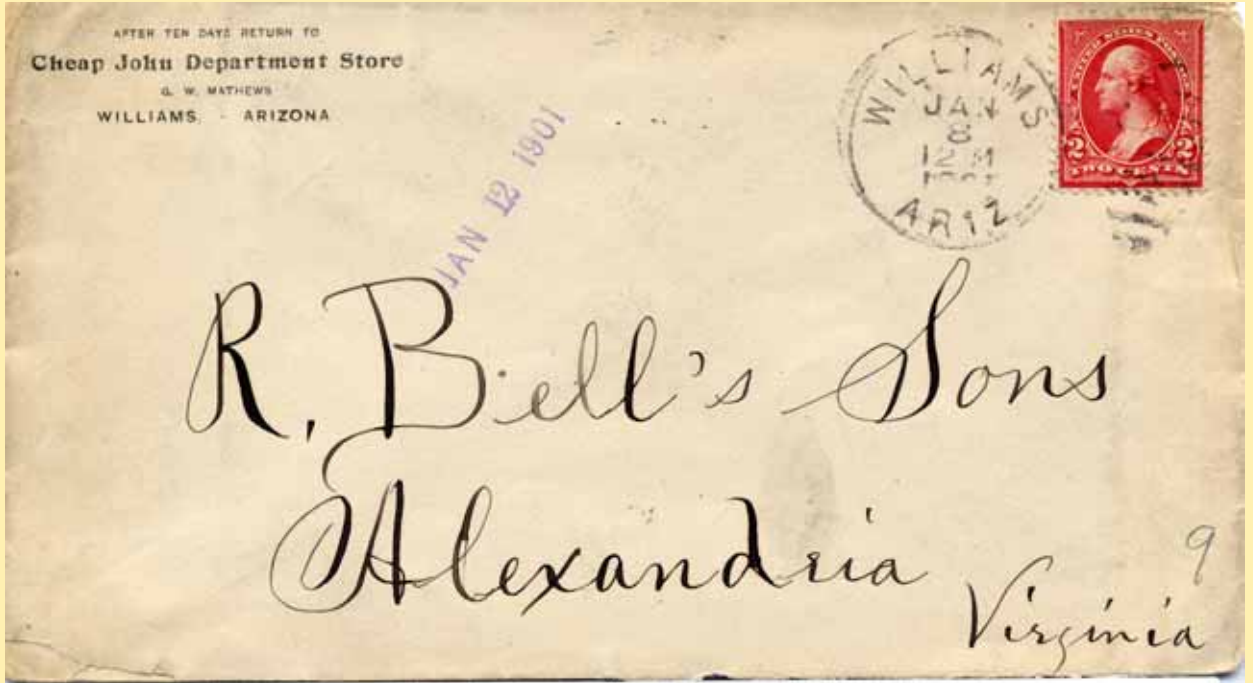 AFTER TEN DAYS RETURN TO
Cheap John Department Store
G. W. MATHEWS
WILLIAMS, - ARIZONA
JAN 12 1901
WILLIAMS
JAN
8
12 M
1901
ARIZ
UNITED STATES POSTAGE
2 2
TWO CENTS
R. Bell's Sons
Alexandria
Virginia
9